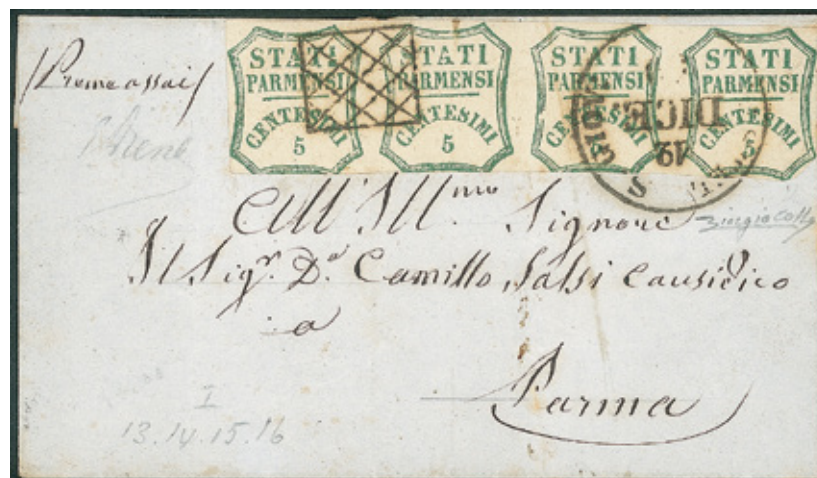 STATI PARMENSI CENTESIMI 5
STATI PARMENSI CENTESIMI 5
STATI PARMENSI CENTESIMI 5
STATI PARMENSI CENTESIMI 5
12 DICE
Preme assai
All'Ill.mo Signore
Il Sigr. Dr. Camillo Salsi Causidico
a
Parma
I
13.14.15.16